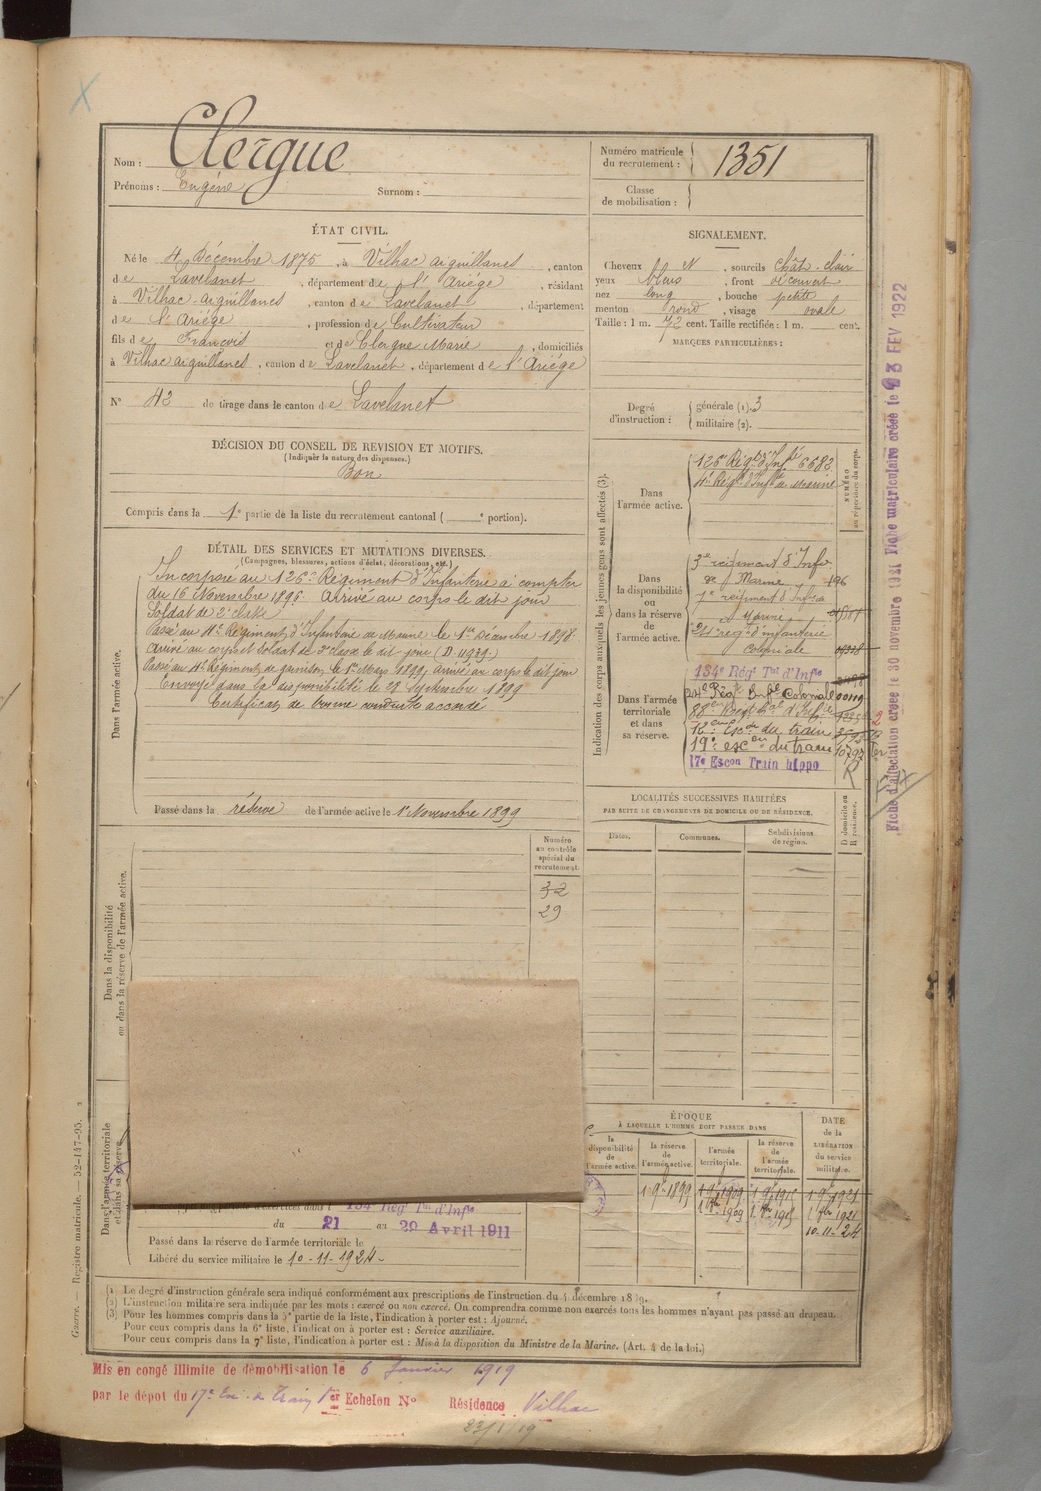 Nom : Clergue
Prénoms : Eugène Surnom :
Numéro matricule du recrutement : 1351
Classe de mobilisation :
ÉTAT CIVIL.
Né le 4 Décembre 1875, à Vilhac aiguillanes, canton
de Lavelanet, département de l'Ariège, résidant
à Vilhac-aiguillanes, canton de Lavelanet, département
de l'Ariège, profession de Cultivateur
fils de François et de Clergue Marie, domiciliés
à Vilhac aiguillanes, canton de Lavelanet, département de l'Ariège
N° 43 de tirage dans le canton de Lavelanet
SIGNALEMENT.
Cheveux bl N, sourcils chât-clair
yeux bleus, front découvert
nez long, bouche petite
menton rond, visage ovale
Taille : 1 m. 72 cent. Taille rectifiée : 1 m. cent.
MARQUES PARTICULIÈRES :
Degré d'instruction : générale (1). 3
militaire (2).
DÉCISION DU CONSEIL DE REVISION ET MOTIFS.
(Indiquer la nature des dispenses.)
Bon
Compris dans la 1e partie de la liste du recrutement cantonal ( e portion).
DÉTAIL DES SERVICES ET MUTATIONS DIVERSES.
(Campagnes, blessures, actions d'éclat, décorations, etc.)
Dans l'armée active.
Incorporé au 126e Régiment d'Infanterie à compter
du 16 Novembre 1896. Arrivé au corps le dit jour
Soldat de 2e classe
Passé au 4e Régiment d'Infanterie de Marine le 1er Décembre 1898.
Arrivé au corps et Soldat de 2e classe le dit jour (D. 11939.)
Passé au 4e Régiment, de garnison, le 1er Mars 1899, arrivé au corps le dit jour
Envoyé dans la disponibilité le 22 Septembre 1899
Certificat de bonne conduite accordé
Passé dans la réserve de l'armée active le 1er Novembre 1899
Indication des corps auxquels les jeunes gens sont affectés (3).
NUMÉRO au répertoire du corps.
Dans l'armée active.
126e Régt d'Infie 6682
4e Régt d'Infie de Marine
Dans la disponibilité ou dans la réserve de l'armée active.
3me régiment d'Infie
de Marine 196
7e régiment d'Infie de
Marine
24e régt d'infanterie
Coloniale
Dans l'armée territoriale et dans sa réserve.
134e Régt Tal d'Infie
24e Régt Infie Coloniale 00119
88e Régt tal d'Infie
12e Escon du train
19e escon du train 10797
17e Escon Train hippo
R
Fiche d'affectation créée le 30 novembre 1921 Fiche matriculaire créée le 23 FEV 1922
LOCALITÉS SUCCESSIVES HABITÉES
PAR SUITE DE CHANGEMENTS DE DOMICILE OU DE RÉSIDENCE.
Dates. Communes. Subdivisions de région. D domicile ou R résidence.
Dans la disponibilité ou dans la réserve de l'armée active.
Numéro au contrôle spécial du recrutement.
32
29
Dans l'armée territoriale et dans sa réserve.
134e Régt Tal d'Infie
du 21 au 29 Avril 1911
Passé dans la réserve de l'armée territoriale le
Libéré du service militaire le 10-11-1924-
ÉPOQUE
À LAQUELLE L'HOMME DOIT PASSER DANS
la disponibilité de l'armée active.
la réserve de l'armée active.
l'armée territoriale.
la réserve de l'armée territoriale.
DATE de la LIBÉRATION du service militaire.
1 9bre 1899 1 9bre 1909 1 9bre 1915 1 9bre 1921
1 8bre 1909 1 8bre 1915 1 8bre 1921
10-11-24
Guerre. — Registre matricule. — 52-147-95.
(1) Le degré d'instruction générale sera indiqué conformément aux prescriptions de l'instruction du 4 décembre 1889.
(2) L'instruction militaire sera indiquée par les mots : exercé ou non exercé. On comprendra comme non exercés tous les hommes n'ayant pas passé au drapeau.
(3) Pour les hommes compris dans la 5e partie de la liste, l'indication à porter est : Ajourné.
Pour ceux compris dans la 6e liste, l'indication à porter est : Service auxiliaire.
Pour ceux compris dans la 7e liste, l'indication à porter est : Mis à la disposition du Ministre de la Marine. (Art. 4 de la loi.)
Mis en congé illimité de démobilisation le 6 Janvier 1919
par le dépôt du 17e Esc. du Train 1er Echelon N° Résidence Vilhac
23/1/19